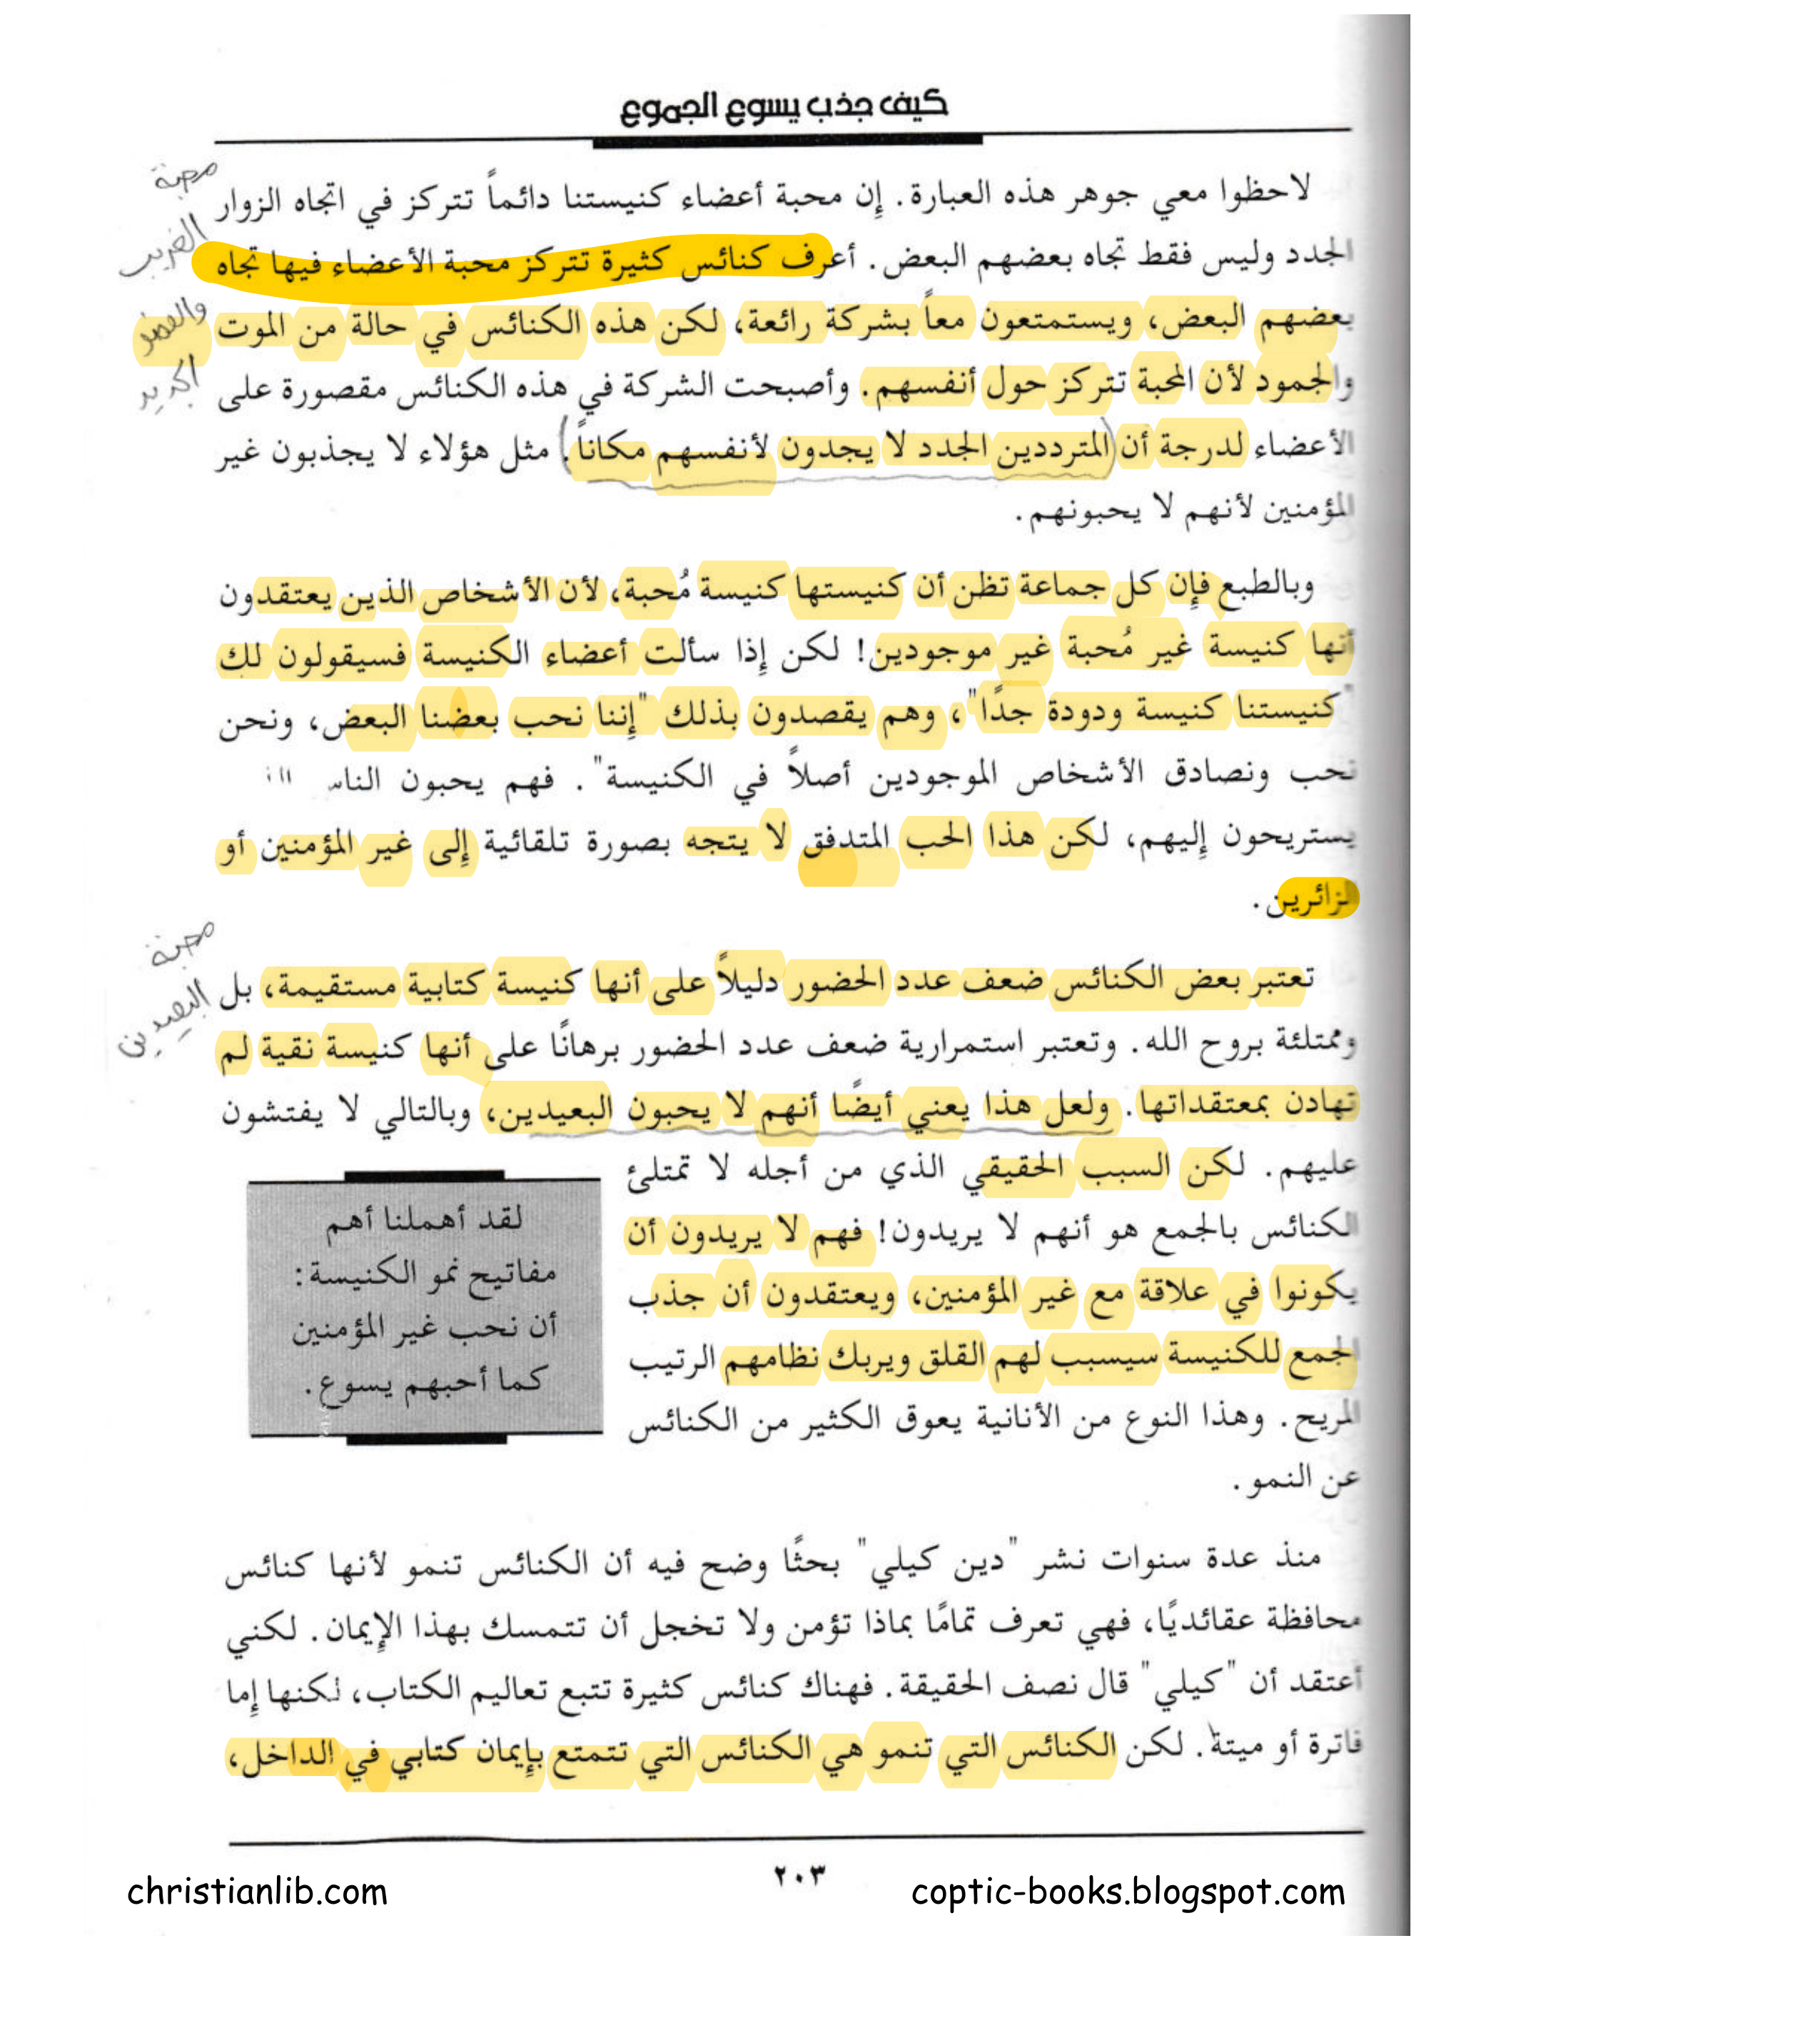 كيف جذب يسوع الجموع
محبة
الغريب
والعضو
الجديد
لاحظوا معي جوهر هذه العبارة. إن محبة أعضاء كنيستنا دائماً تتركز في اتجاه الزوار
الجدد وليس فقط تجاه بعضهم البعض. أعرف كنائس كثيرة تتركز محبة الأعضاء فيها تجاه
بعضهم البعض، ويستمتعون معاً بشركة رائعة، لكن هذه الكنائس في حالة من الموت
والجمود لأن المحبة تتركز حول أنفسهم. وأصبحت الشركة في هذه الكنائس مقصورة على
الأعضاء لدرجة أن (المترددين الجدد لا يجدون لأنفسهم مكاناً.) مثل هؤلاء لا يجذبون غير
المؤمنين لأنهم لا يحبونهم.
وبالطبع فإن كل جماعة تظن أن كنيستها كنيسة مُحبة، لأن الأشخاص الذين يعتقدون
أنها كنيسة غير مُحبة غير موجودين! لكن إذا سألت أعضاء الكنيسة فسيقولون لك
"كنيستنا كنيسة ودودة جدًا"، وهم يقصدون بذلك "إننا نحب بعضنا البعض، ونحن
نحب ونصادق الأشخاص الموجودين أصلاً في الكنيسة". فهم يحبون الناس
يستريحون إليهم، لكن هذا الحب المتدفق لا يتجه بصورة تلقائية إلى غير المؤمنين أو
الزائرين.
محبة
البعيدين
تعتبر بعض الكنائس ضعف عدد الحضور دليلاً على أنها كنيسة كتابية مستقيمة، بل
وممتلئة بروح الله. وتعتبر استمرارية ضعف عدد الحضور برهانًا على أنها كنيسة نقية لم
تهادن بمعتقداتها. ولعل هذا يعني أيضًا أنهم لا يحبون البعيدين، وبالتالي لا يفتشون
عليهم. لكن السبب الحقيقي الذي من أجله لا تمتلئ
الكنائس بالجمع هو أنهم لا يريدون! فهم لا يريدون أن
يكونوا في علاقة مع غير المؤمنين، ويعتقدون أن جذب
الجمع للكنيسة سيسبب لهم القلق ويربك نظامهم الرتيب
المريح. وهذا النوع من الأنانية يعوق الكثير من الكنائس
عن النمو.
لقد أهملنا أهم
مفاتيح نمو الكنيسة:
أن نحب غير المؤمنين
كما أحبهم يسوع.
منذ عدة سنوات نشر "دين كيلي" بحثًا وضح فيه أن الكنائس تنمو لأنها كنائس
محافظة عقائديًا، فهي تعرف تمامًا بماذا تؤمن ولا تخجل أن تتمسك بهذا الإيمان. لكني
أعتقد أن "كيلي" قال نصف الحقيقة. فهناك كنائس كثيرة تتبع تعاليم الكتاب، لكنها إما
فاترة أو ميتة. لكن الكنائس التي تنمو هي الكنائس التي تتمتع بإيمان كتابي في الداخل،
٢٠٣
christianlib.com
coptic-books.blogspot.com